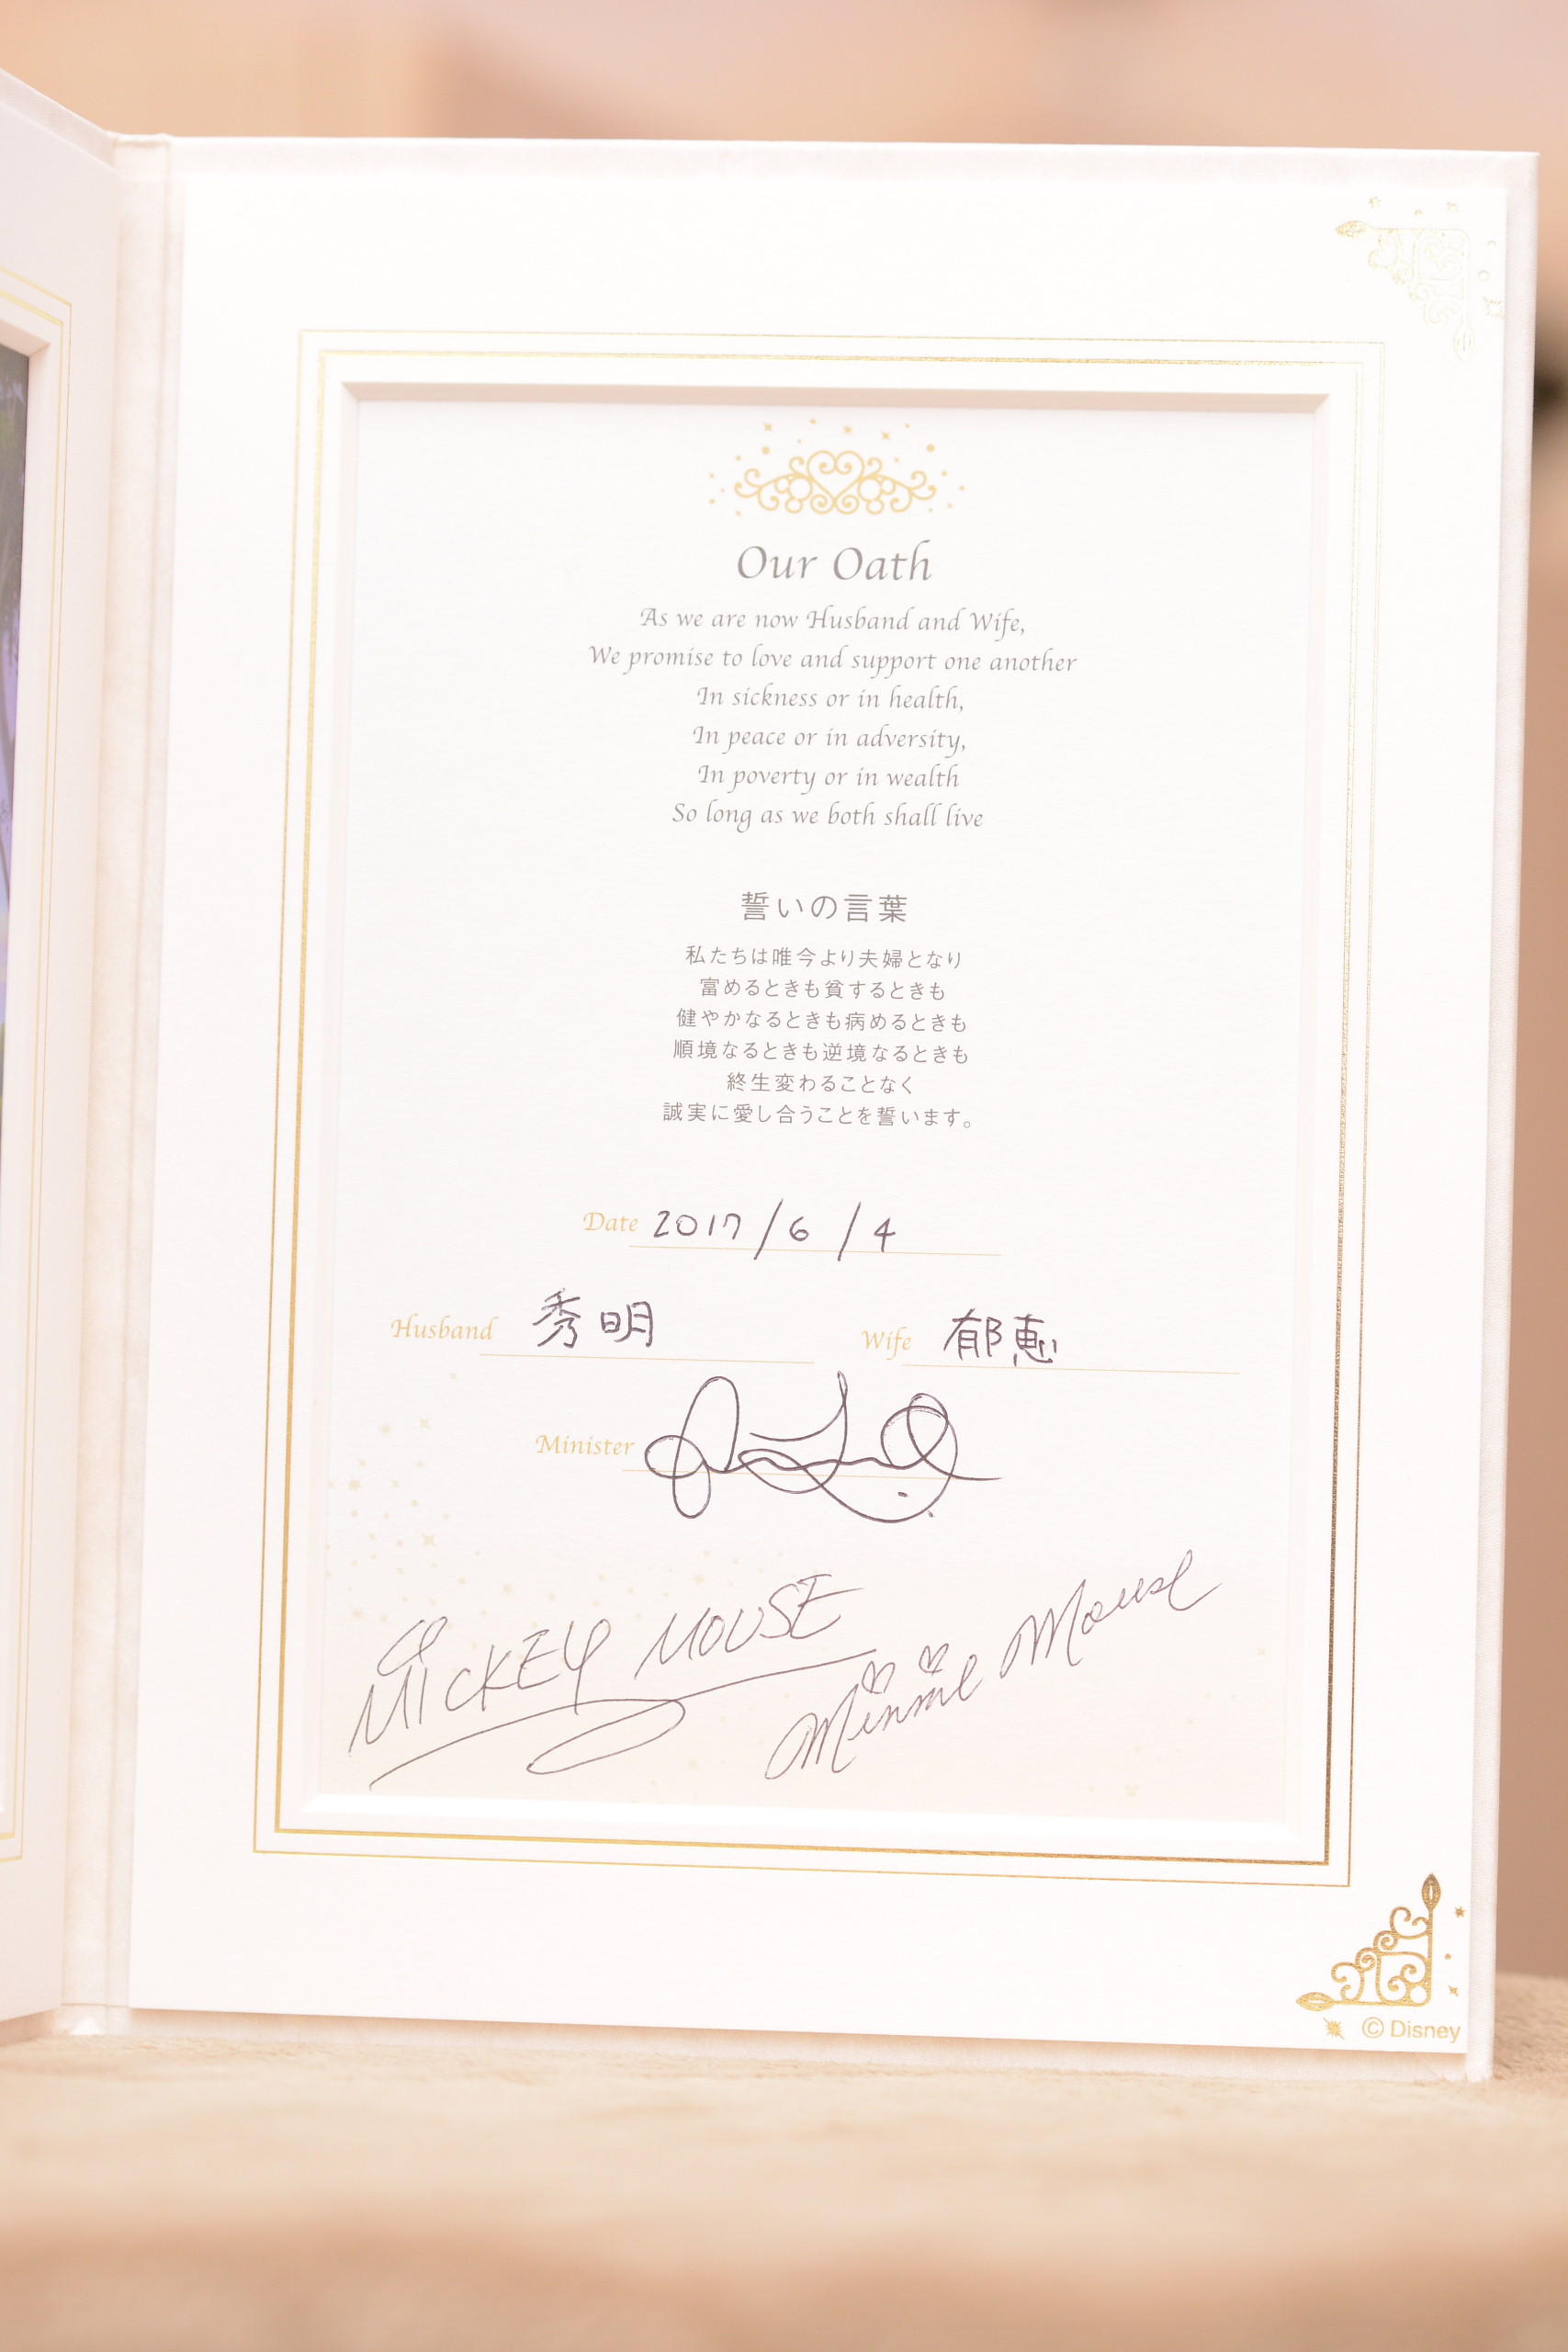 Our Oath
As we are now Husband and Wife,
We promise to love and support one another
In sickness or in health,
In peace or in adversity,
In poverty or in wealth
So long as we both shall live
誓いの言葉
私たちは唯今より夫婦となり
富めるときも貧するときも
健やかなるときも病めるときも
順境なるときも逆境なるときも
終生変わることなく
誠実に愛し合うことを誓います。
Date 2017/6/4
Husband 秀明 Wife 郁恵
Minister
MICKEY MOUSE Minnie Mouse
© Disney